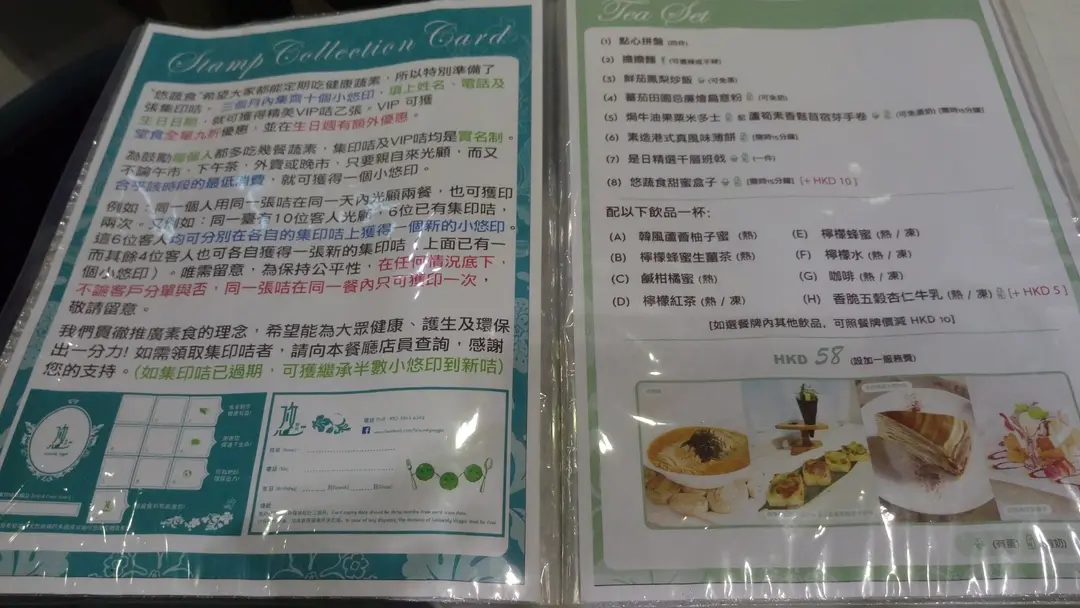 Stamp Collection Card
"悠蔬食"希望大家都能定期吃健康蔬素，所以特別準備了
張集印咭， 三個月內集齊十個小悠印，填上姓名、電話及
生日日期，就可獲得精美VIP咭乙張。VIP 可獲
堂食全單九折優惠，並在生日週有額外優惠。
為鼓勵 都多吃幾餐蔬素，集印咭及VIP咭均是實名制。
不論午市、下午茶，外賣或晚市，只要親自來光顧，而又
合乎該時段的最低消費，就可獲得一個小悠印。
例如：同一個人用同一張咭在同一天內光顧兩餐，也可獲印
兩次。又例如：同一臺有10位客人光顧，6位已有集印咭，
這6位客人均可分別在各自的集印咭上獲得一個新的小悠印。
而其餘4位客人也可各自獲得一張新的集印咭（上面已有一
個小悠印）。唯需留意，為保持公平性，在任何情況底下，
不論客戶分單與否，同一張咭在同一餐內只可獲印一次，
敬請留意。
我們貫徹推廣素食的理念，希望能為大眾健康、護生及環保
出一分力! 如需領取集印咭者，請向本餐廳店員查詢，感謝
您的支持。(如集印咭已過期，可獲繼承半數小悠印到新咭)
Tea Set
(1) 點心拼盤 (四件)
(2) 擔擔麵
(3) 鮮茄鳳梨炒飯 (可免蛋)
(4) 蕃茄田園忌廉燴扁意粉 (可免奶)
(5) 焗牛油果粟米多士 配 蘆筍素香鬆苜宿芽手卷 (可免蛋奶) [需時15分鐘]
(6) 素逸港式真風味薄餅 [需時15分鐘]
(7) 是日精選千層班戟 (一件)
(8) 悠蔬食甜蜜盒子 [需時15分鐘] [+ HKD 10]
配以下飲品一杯:
(A) 韓風蘆薈柚子蜜 (熱)
(B) 檸檬蜂蜜生薑茶 (熱)
(C) 鹹柑橘蜜 (熱)
(D) 檸檬紅茶 (熱 / 凍)
(E) 檸檬蜂蜜 (熱 / 凍)
(F) 檸檬水 (熱 / 凍)
(G) 咖啡 (熱 / 凍)
(H) 香脆五穀杏仁牛乳 (熱 / 凍) [+ HKD 5]
[如選餐牌內其他飲品，可照餐牌價減 HKD 10]
HKD 58 (設加一服務費)